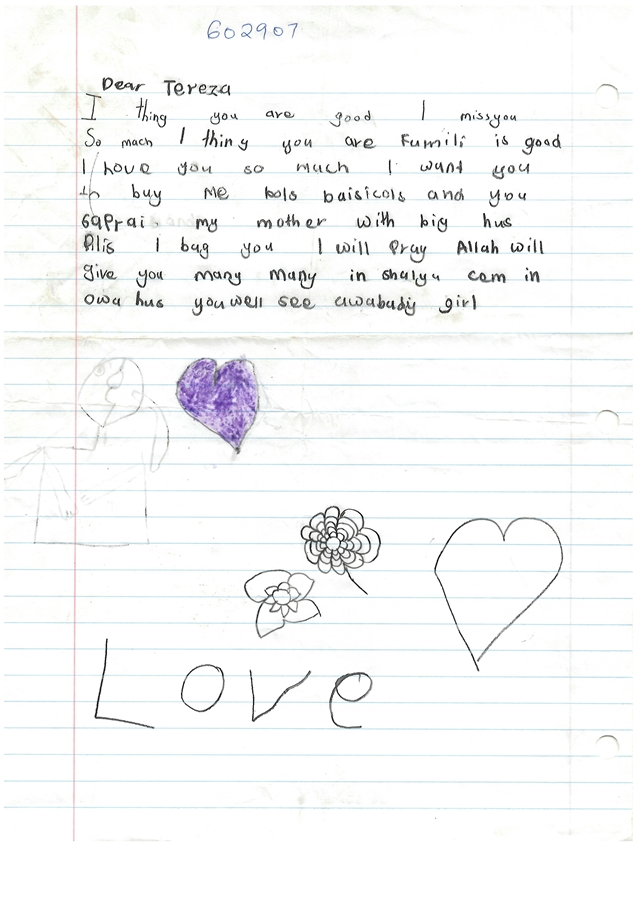 602907
Dear Tereza
I thing you are good I missyou
So mach I thing you are Fumili is good
I Love you so much I want you
to buy me bols baisicols and you
my mother with big hus
Plis I bag you I will Pray Allah will
give you many many in shalya cem in
owa hus you well see awabadiy girl
Love